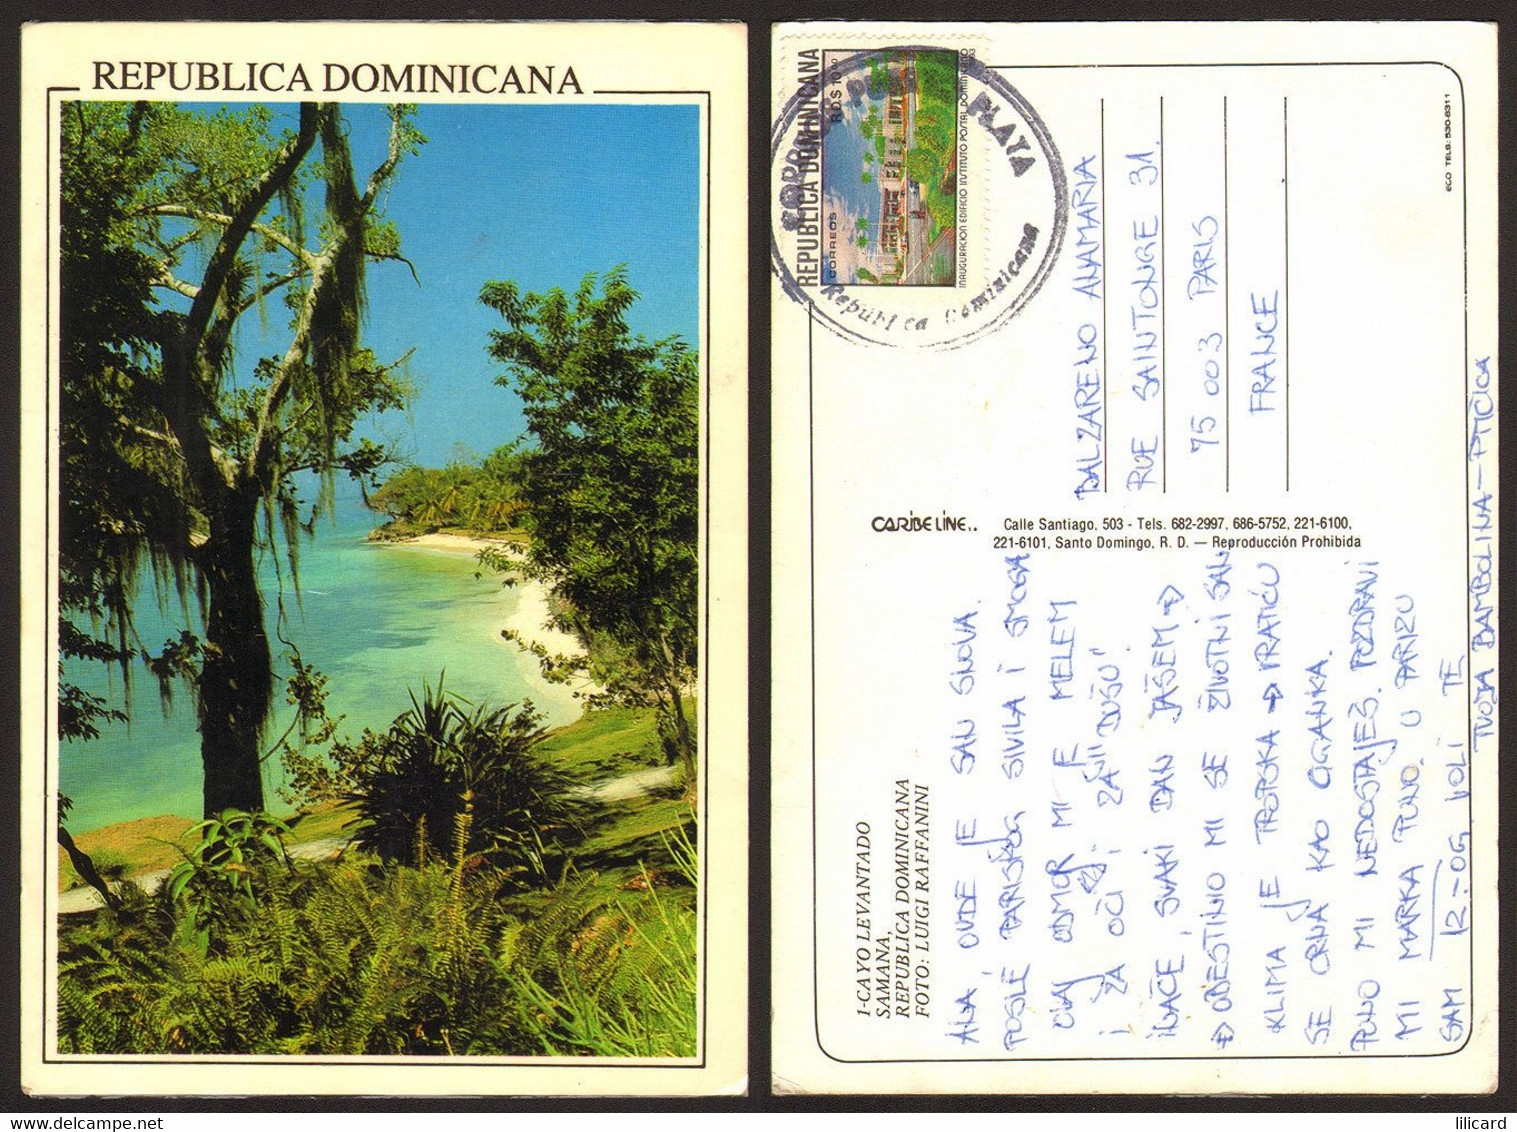 REPUBLICA DOMINICANA
REPUBLICA DOMINICANA
RD$ 10.00
CORREOS
INAUGURACION EDIFICIO INSTITUTO POSTAL DOMINICANO
PLAYA
Republica Dominicana
ECO TELS: 530-8311
BALZARENO ANAMARIA
RUE SAINTONGE 31.
75 003 PARIS
FRANCE
CARIBE LINE..
Calle Santiago, 503 - Tels. 682-2997, 686-5752, 221-6100,
221-6101, Santo Domingo, R. D. — Reproducción Prohibida
1-CAYO LEVANTADO
SAMANA,
REPUBLICA DOMINICANA
FOTO: LUIGI RAFFANINI
ANA, OVDE JE SAN SNOVA.
POSLE PARISKOG SIVILA I SMOGA
OVAJ ODMOR MI JE MELEM
I ZA OČI, I ZA "DUŠU"
INAČE, SVAKI DAN JAŠEM →
→ OBESTINIO MI SE ŽIVOTNI SAN
KLIMA JE TROPSKA → VRATIĆU
SE CRNA KAO CIGANKA.
PUNO MI NEDOSTAJEŠ. POZDRAVI
MI MARKA PUNO. U PARIZU
SAM 12-OG. VOLI TE
TVOJA BAMBOLINA - PTIČICA
lilicard